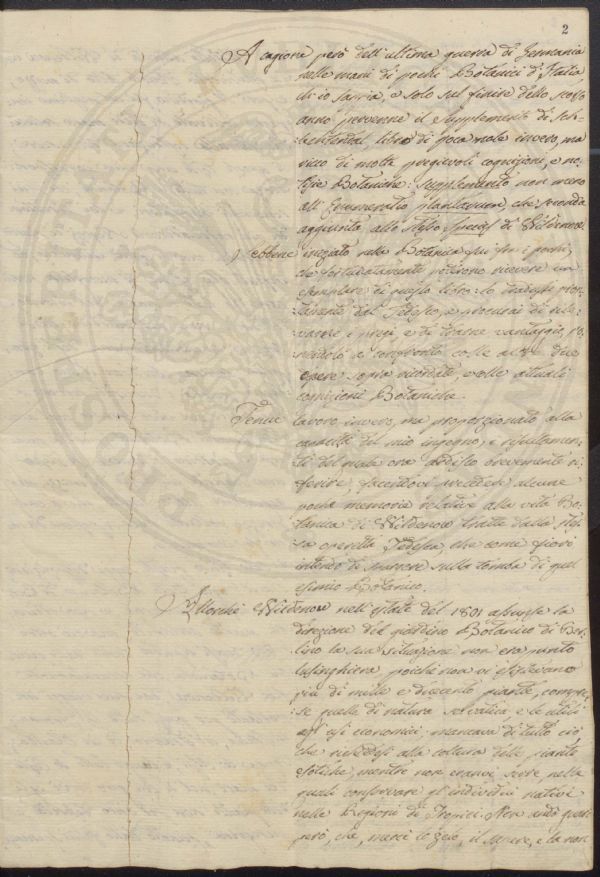 2
A cagione però dell'ultima guerra di Germania
nelle mani di pochi Botanici d'Italia
ch'io sappia, e solo sul finire dello scorso
anno pervenne il Supplemento di
libro di poca mole invero, ma
ricco di molte pregievoli cognizioni, e no-
tizie Botaniche: supplemento non meno
all'Enumeratio plantarum, che seconda
aggiunta allo stesso Species di Wildenow.
ebbene iniziato nella Botanica fui fra i pochi,
che fortunatamente poterono ricevere un
esemplare di questo libro: lo
dal Tedesco, e procurai di rile-
varne i pregi, e di trarne vantaggio, po-
nendolo a confronto colle altre due
opere sopra ricordate, e colle attuali
cognizioni Botaniche.
Tenue lavoro invero, ma proporzionato alla
del mio ingegno; e
del quale ora ardisco brevemente ri-
ferire, facendovi precedere alcune
poche memorie relative alla vita Bo-
tanica di Wildenow tratte dalla stes-
sa operetta Tedesca, che come fiori
intendo di spargere sulla tomba di quel
esimio Botanico.
Allorchè Wildenow nell'estate del 1801 assunse la
direzione del giardino Botanico di Ber-
lino la sua situazione non era punto
lusinghiera, poichè non vi esistevano
più di mille e duecento piante, compre-
se quelle di natura selvatica, e le utili
agl'usi economici; mancava di tutto ciò
che richiedesi alla coltura delle piante
esotiche, mentre non eranvi serre nelle
quali conservare gl'individui nativi
nelle Regioni di Tropici. Non andò guari
però, che, mercè lo zelo, il sapere, e la non